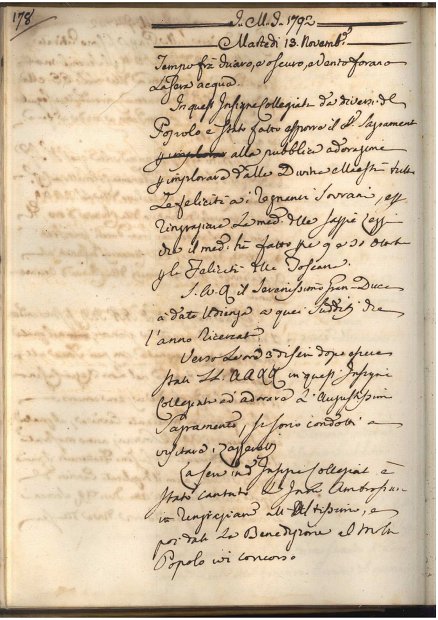 178
J. M. J. 1792
Martedì 13. Novemb.e
Tempo frà chiaro, e oscuro, e vento forano
La sera acqua.
In quest' Insigne Collegiata da diversi del
Popolo è stato fatto esporre il SS. Sagrament
alla pubblica adorazione
p implorare dalle Divine Maestà tutte
Le felicità a i Regnanti Sovrani, e
ringraziare La med. delle saggie Leggi
che il med. hà fatto pe
gli Felicità della Toscana.
S. A. R. il Serenissimo Gran-Duca
à dato Udienza a quei Sudditi che
l'anno Ricercat
Verso Le ore 3 di sera dopo essere
stati LL. AA. RR. in quest' Insigne
Collegiata ad adorare L'Augustissimo
Sagramento, si sono condotti a
visitare i
La sera in d.a Insigne Collegiat è
stato cantato L'Inno Ambrosia
in Ringraziam. all'Altissimo, e
poi data La Benedizione e Molto
Popolo vi è concorso